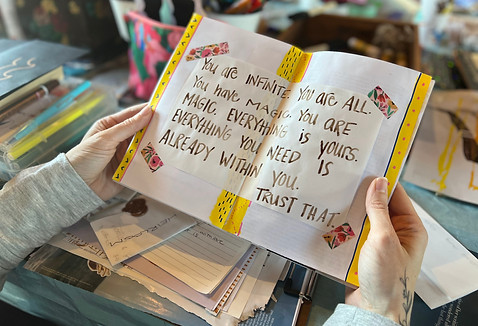 You are INFINITE. You are ALL.
You have MAGIC. You are
MAGIC. EVERYTHING is yours.
EVERYTHING YOU NEED IS
ALREADY WITHIN YOU.
TRUST THAT